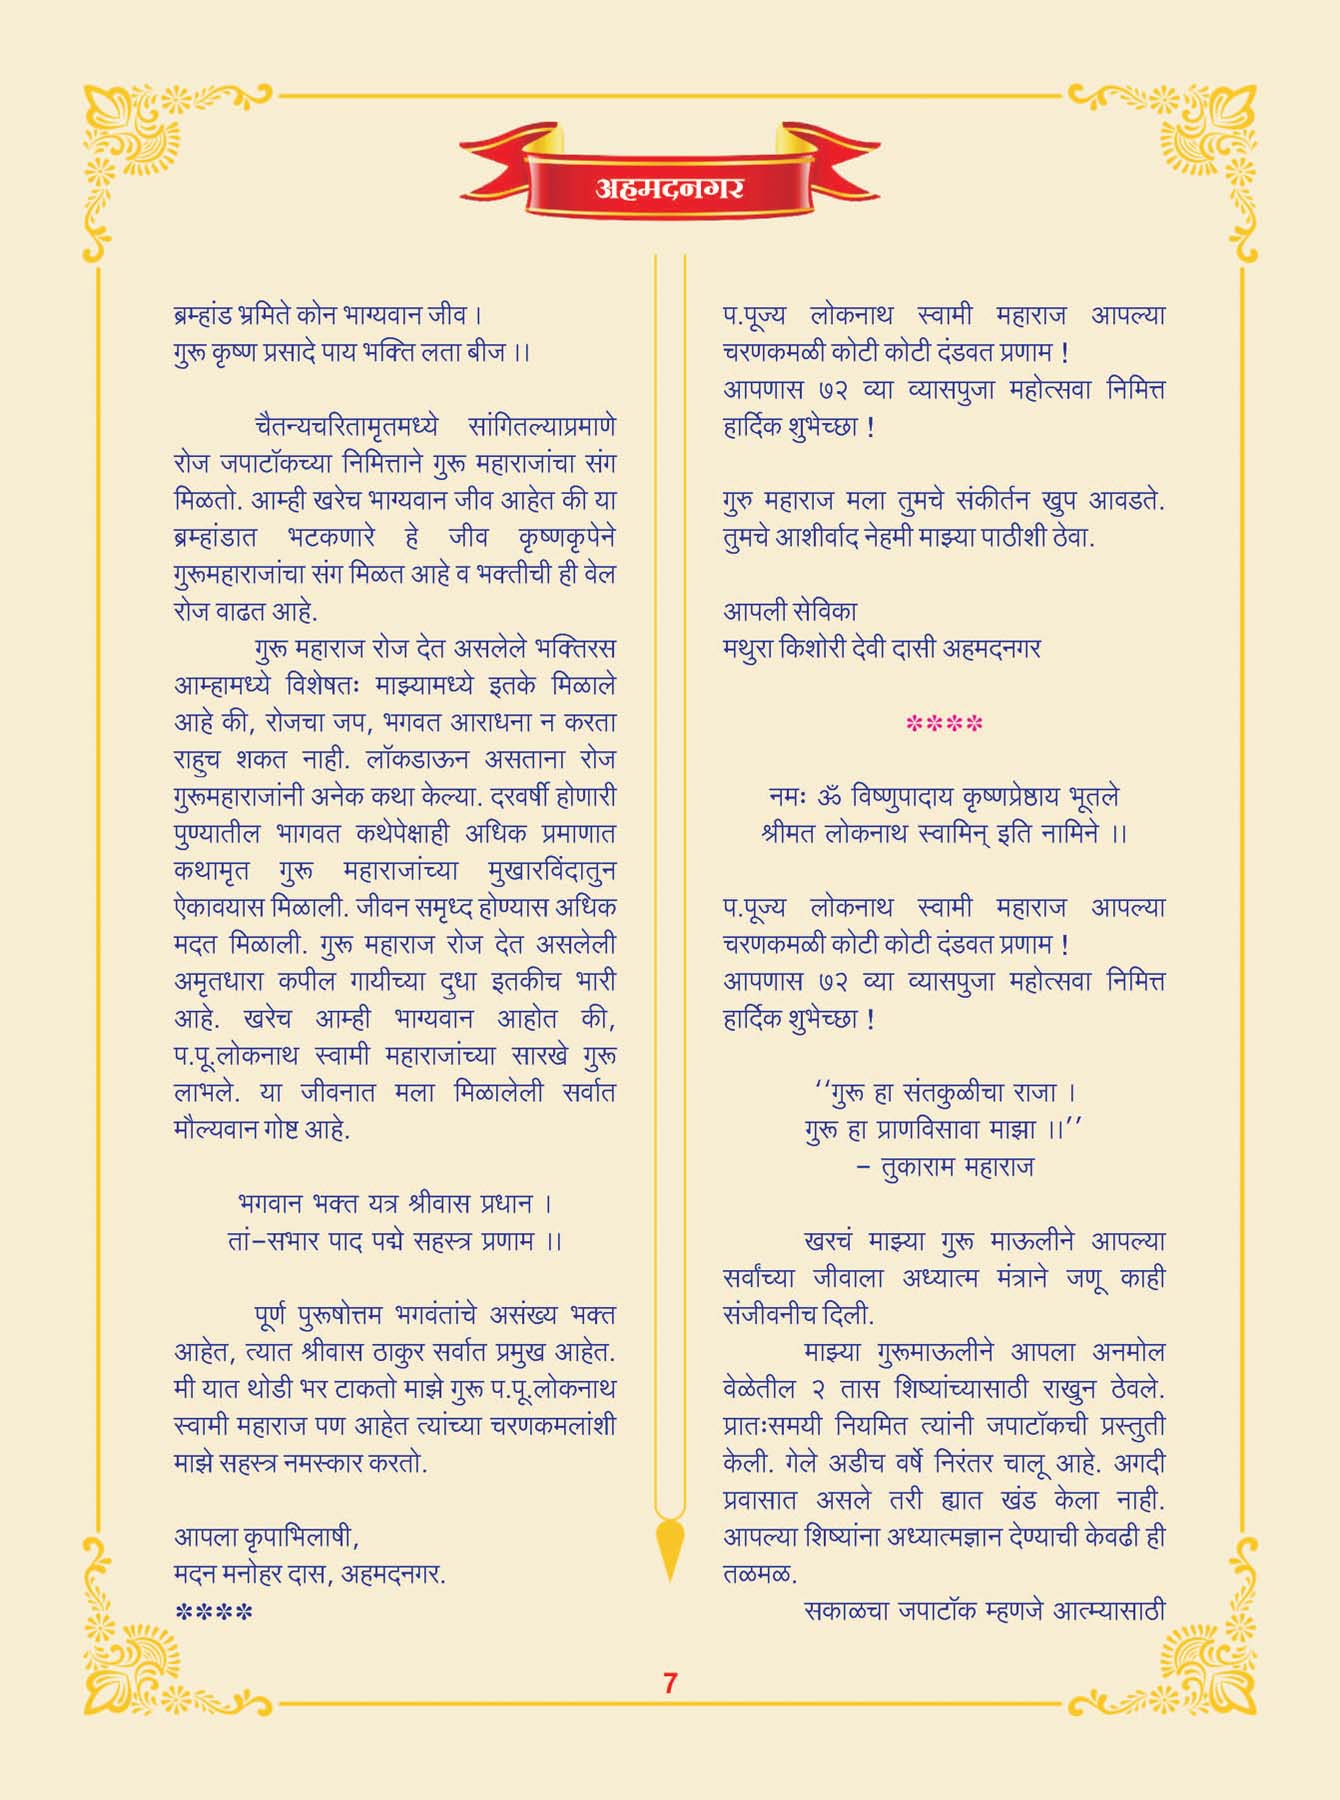 अहमदनगर
ब्रम्हांड भ्रमिते कोन भाग्यवान जीव ।
गुरू कृष्ण प्रसादे पाय भक्ति लता बीज ।।
चैतन्यचरितामृतमध्ये सांगितल्याप्रमाणे
रोज जपाटॉकच्या निमित्ताने गुरू महाराजांचा संग
मिळतो. आम्ही खरेच भाग्यवान जीव आहेत की या
ब्रम्हांडात भटकणारे हे जीव कृष्णकृपेने
गुरूमहाराजांचा संग मिळत आहे व भक्तीची ही वेल
रोज वाढत आहे.
गुरू महाराज रोज देत असलेले भक्तिरस
आम्हामध्ये विशेषतः माझ्यामध्ये इतके मिळाले
आहे की, रोजचा जप, भगवत आराधना न करता
राहुच शकत नाही. लॉकडाऊन असताना रोज
गुरूमहाराजांनी अनेक कथा केल्या. दरवर्षी होणारी
पुण्यातील भागवत कथेपेक्षाही अधिक प्रमाणात
कथामृत गुरू महाराजांच्या मुखारविंदातुन
ऐकावयास मिळाली. जीवन समृध्द होण्यास अधिक
मदत मिळाली. गुरू महाराज रोज देत असलेली
अमृतधारा कपील गायीच्या दुधा इतकीच भारी
आहे. खरेच आम्ही भाग्यवान आहोत की,
प.पू.लोकनाथ स्वामी महाराजांच्या सारखे गुरू
लाभले. या जीवनात मला मिळालेली सर्वात
मौल्यवान गोष्ट आहे.
भगवान भक्त यत्र श्रीवास प्रधान ।
तां–सभार पाद पद्मे सहस्त्र प्रणाम ।।
पूर्ण पुरूषोत्तम भगवंतांचे असंख्य भक्त
आहेत, त्यात श्रीवास ठाकुर सर्वात प्रमुख आहेत.
मी यात थोडी भर टाकतो माझे गुरू प.पू.लोकनाथ
स्वामी महाराज पण आहेत त्यांच्या चरणकमलांशी
माझे सहस्त्र नमस्कार करतो.
आपला कृपाभिलाषी,
मदन मनोहर दास, अहमदनगर.
****
प.पूज्य लोकनाथ स्वामी महाराज आपल्या
चरणकमळी कोटी कोटी दंडवत प्रणाम !
आपणास ७२ व्या व्यासपुजा महोत्सवा निमित्त
हार्दिक शुभेच्छा !
गुरु महाराज मला तुमचे संकीर्तन खुप आवडते.
तुमचे आशीर्वाद नेहमी माझ्या पाठीशी ठेवा.
आपली सेविका
मथुरा किशोरी देवी दासी अहमदनगर
****
नमः ॐ विष्णुपादाय कृष्णप्रेष्ठाय भूतले
श्रीमत लोकनाथ स्वामिन् इति नामिने ।।
प.पूज्य लोकनाथ स्वामी महाराज आपल्या
चरणकमळी कोटी कोटी दंडवत प्रणाम !
आपणास ७२ व्या व्यासपुजा महोत्सवा निमित्त
हार्दिक शुभेच्छा !
‘‘गुरू हा संतकुळीचा राजा ।
गुरू हा प्राणविसावा माझा ।।’’
– तुकाराम महाराज
खरचं माझ्या गुरू माऊलीने आपल्या
सर्वांच्या जीवाला अध्यात्म मंत्राने जणू काही
संजीवनीच दिली.
माझ्या गुरूमाऊलीने आपला अनमोल
वेळेतील २ तास शिष्यांच्यासाठी राखुन ठेवले.
प्रातःसमयी नियमित त्यांनी जपाटॉकची प्रस्तुती
केली. गेले अडीच वर्षे निरंतर चालू आहे. अगदी
प्रवासात असले तरी ह्यात खंड केला नाही.
आपल्या शिष्यांना अध्यात्मज्ञान देण्याची केवढी ही
तळमळ.
सकाळचा जपाटॉक म्हणजे आत्म्यासाठी
7